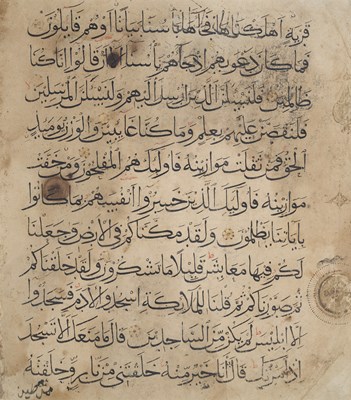 قرية اهلكناها فجاءها باسنا بياتا او هم قايلون
فما كان دعويهم اذ جاهم باسنا الا ان قالوا انا كنا
ظالمين فلنسئلن الذين ارسل اليهم ولنسئلن المرسلين
فلنقصن عليهم بعلم وما كنا غايبين والوزن يوميذ
الحق فمن ثقلت موازينه فاوليك هم المفلحون ومن خفت
موازينه فاوليك الذين خسروا انفسهم بما كانوا
باياتنا يظلمون ولقد مكناكم في الارض وجعلنا
لكم فيها معايش قليلا ما تشكرون ولقد خلقناكم
ثم صورناكم ثم قلنا للملايكة اسجدوا لادم فسجدوا
الا ابليس لم يكن من الساجدين قال ما منعك الا تسجد
اذ امرتك قال انا خير منه خلقتني من نار وخلقته